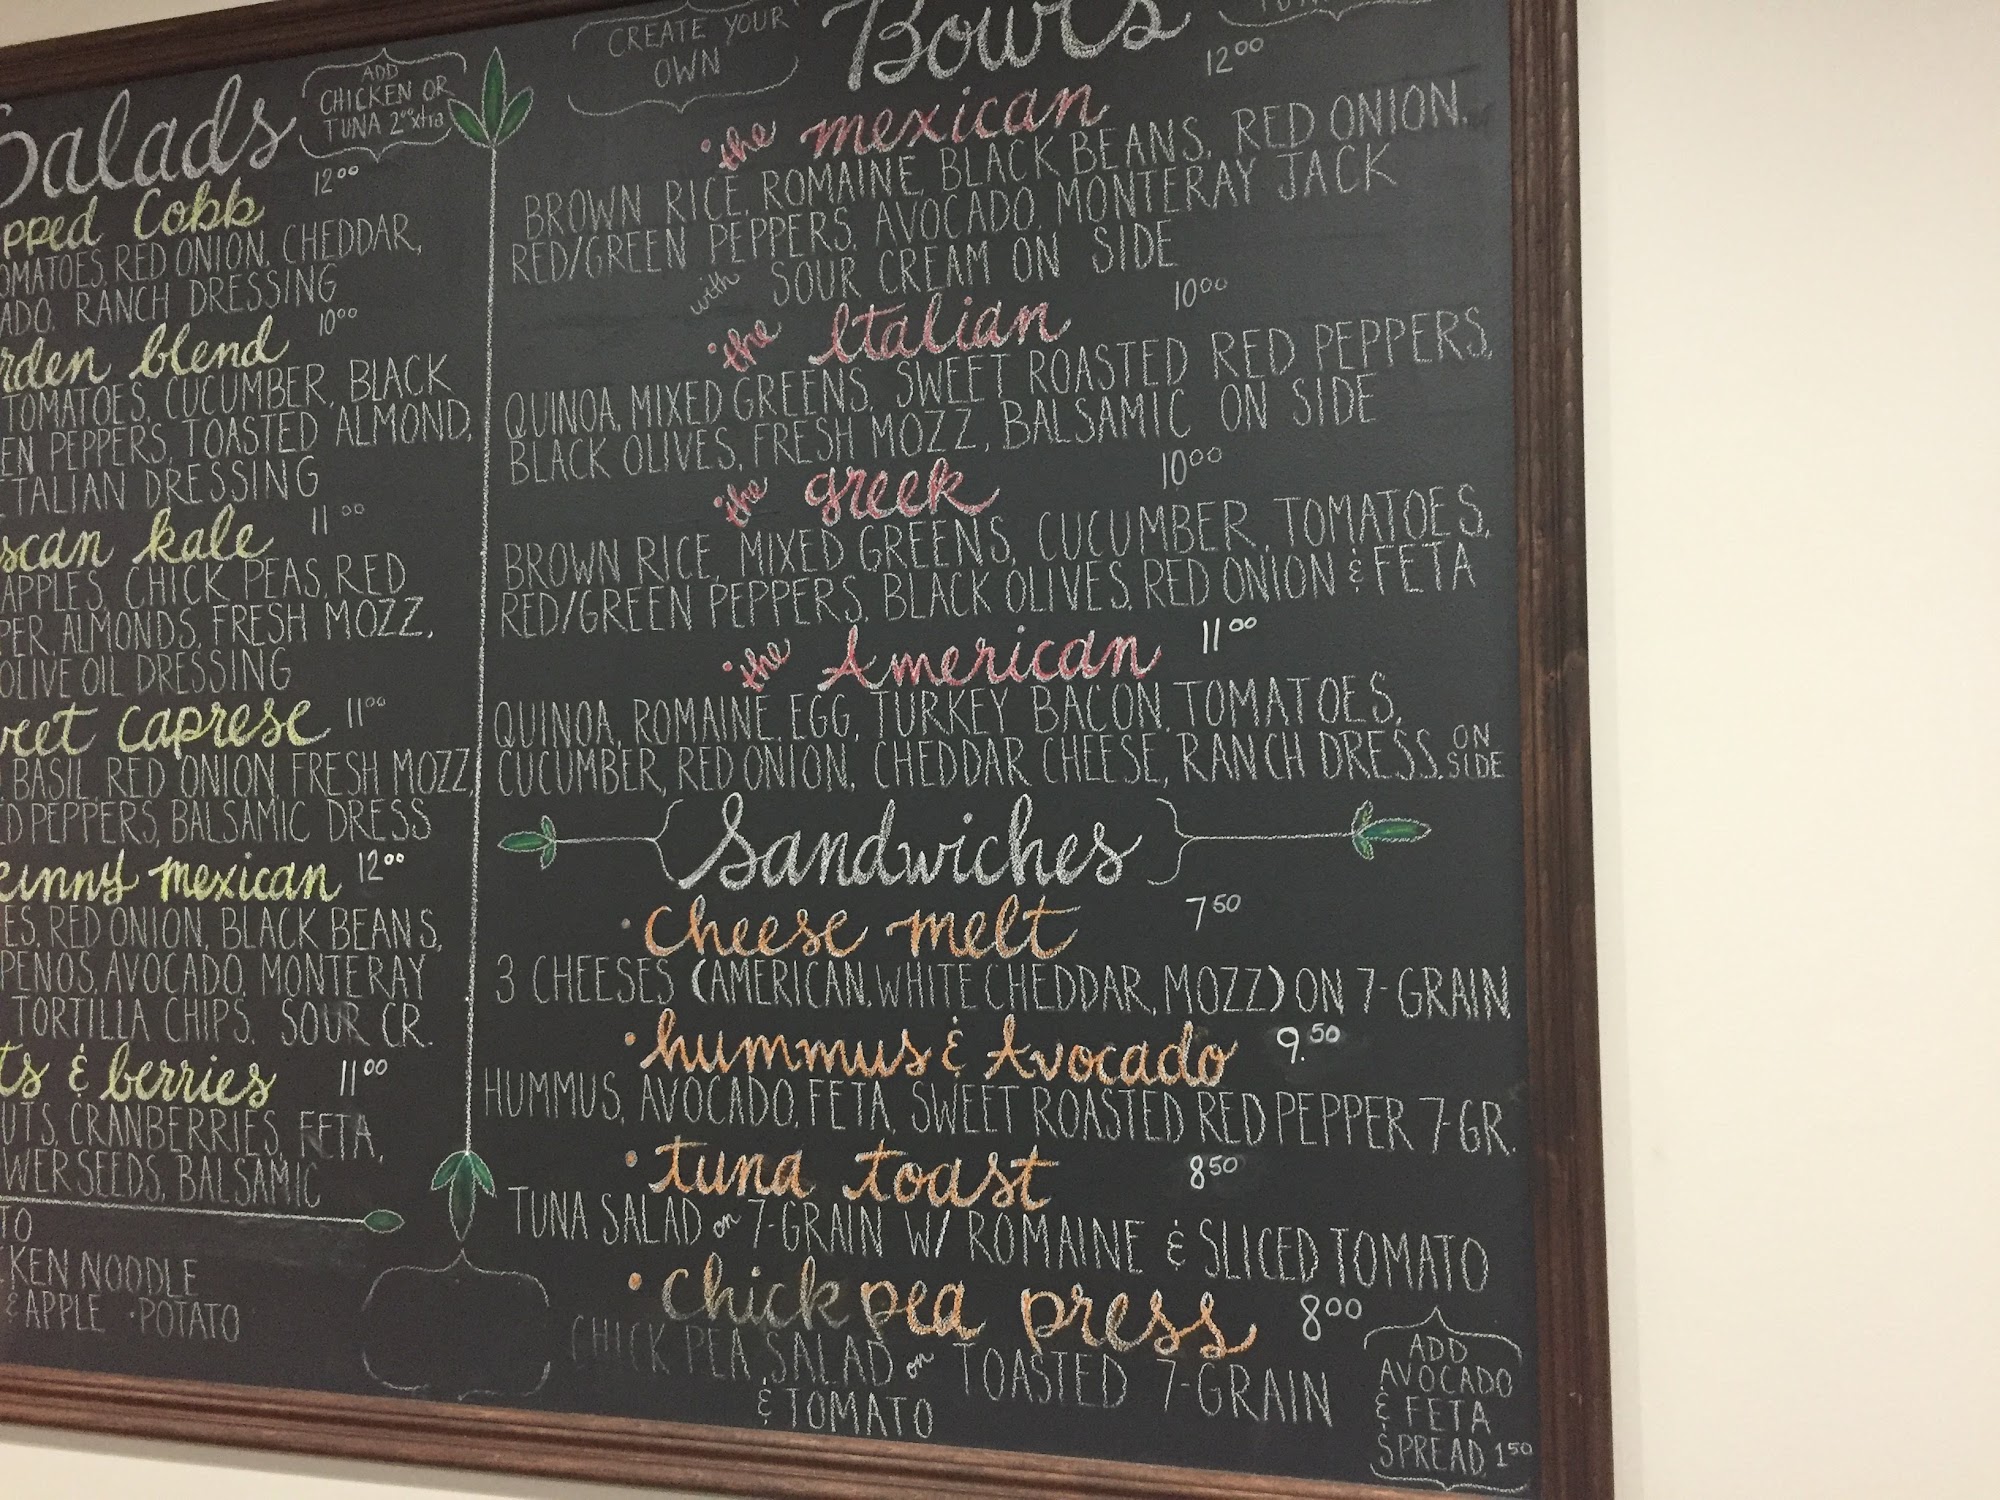 Salads
ADD
CHICKEN OR
TUNA 2.00 xtra
Cobb 12.00
RED ONION, CHEDDAR,
RANCH DRESSING
blend 10.00
TOMATOES, CUCUMBER, BLACK
PEPPERS, TOASTED ALMOND,
ITALIAN DRESSING
kale 11.00
APPLES, CHICK PEAS, RED
ALMONDS, FRESH MOZZ,
OLIVE OIL DRESSING
caprese 11.00
BASIL, RED ONION, FRESH MOZZ,
PEPPERS, BALSAMIC DRESS
mexican 12.00
RED ONION, BLACK BEANS,
AVOCADO, MONTERAY
TORTILLA CHIPS, SOUR CR.
& berries 11.00
CRANBERRIES, FETA,
BALSAMIC
NOODLE
& APPLE · POTATO
CREATE YOUR
OWN
Bowls
the mexican 12.00
BROWN RICE, ROMAINE, BLACK BEANS, RED ONION,
RED/GREEN PEPPERS, AVOCADO, MONTERAY JACK
with SOUR CREAM ON SIDE
the Italian 10.00
QUINOA, MIXED GREENS, SWEET ROASTED RED PEPPERS,
BLACK OLIVES, FRESH MOZZ, BALSAMIC ON SIDE
the greek 10.00
BROWN RICE, MIXED GREENS, CUCUMBER, TOMATOES,
RED/GREEN PEPPERS, BLACK OLIVES, RED ONION & FETA
the American 11.00
QUINOA, ROMAINE, EGG, TURKEY BACON, TOMATOES,
CUCUMBER, RED ONION, CHEDDAR CHEESE, RANCH DRESS. ON SIDE
Sandwiches
· cheese melt 7.50
3 CHEESES (AMERICAN, WHITE CHEDDAR, MOZZ) ON 7-GRAIN
· hummus & Avocado 9.50
HUMMUS, AVOCADO, FETA, SWEET ROASTED RED PEPPER 7-GR.
· tuna toast 8.50
TUNA SALAD on 7-GRAIN W/ ROMAINE & SLICED TOMATO
· chick pea press 8.00
CHICK PEA SALAD on TOASTED 7-GRAIN
& TOMATO
ADD
AVOCADO
& FETA
SPREAD 1.50